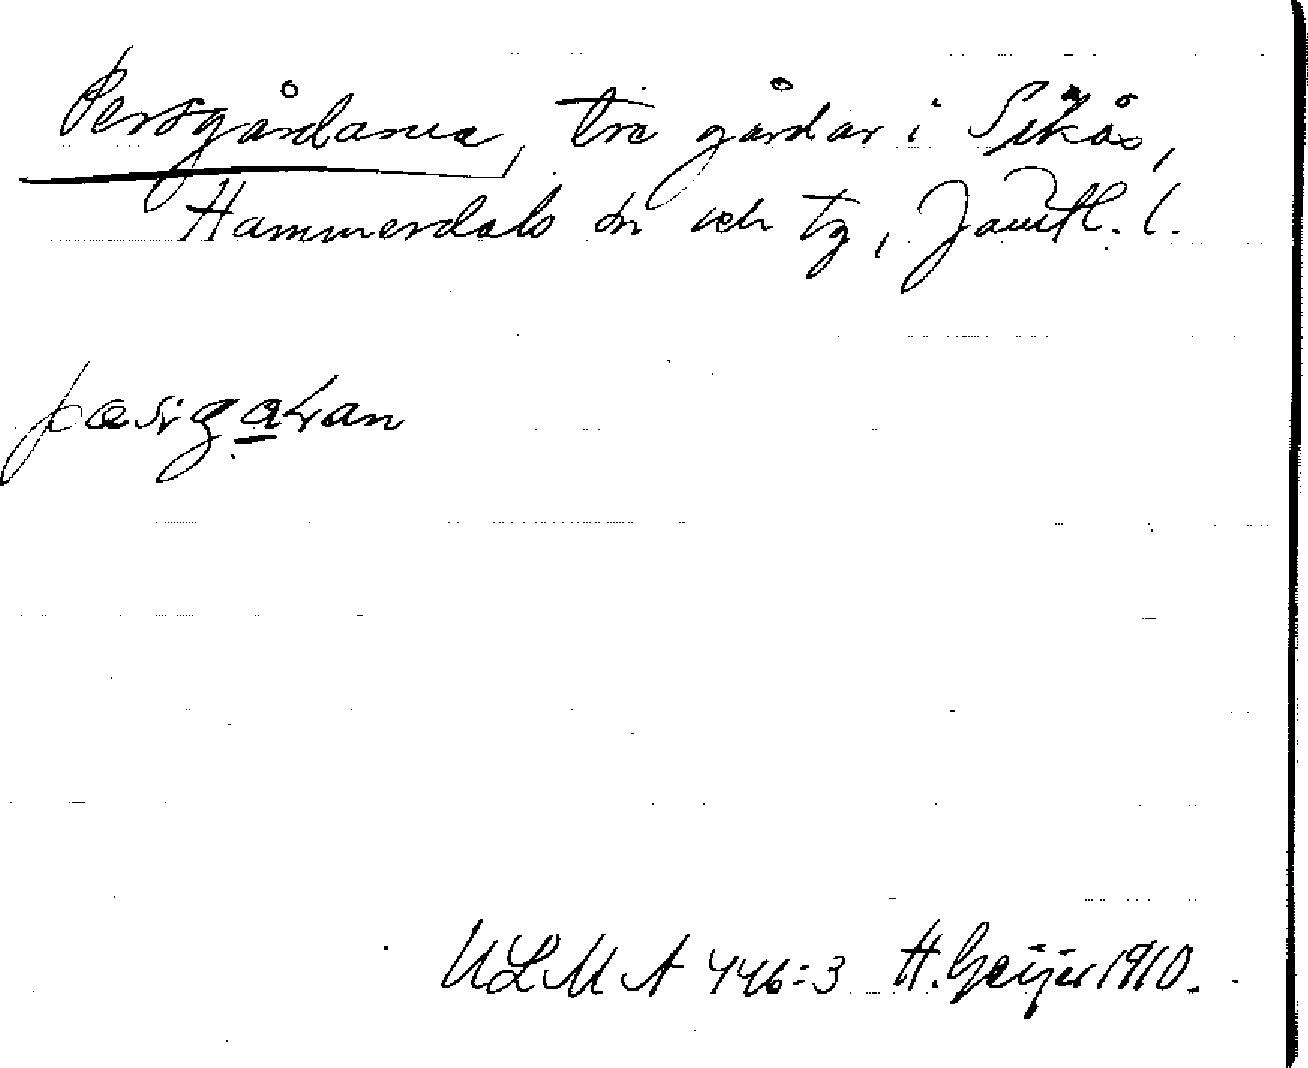 Persgårdarna, tre gårdar i Sikås,
Hammerdals sn och tg, Jämtl. l.
ULMA 446:3 H. Geijer 1910.